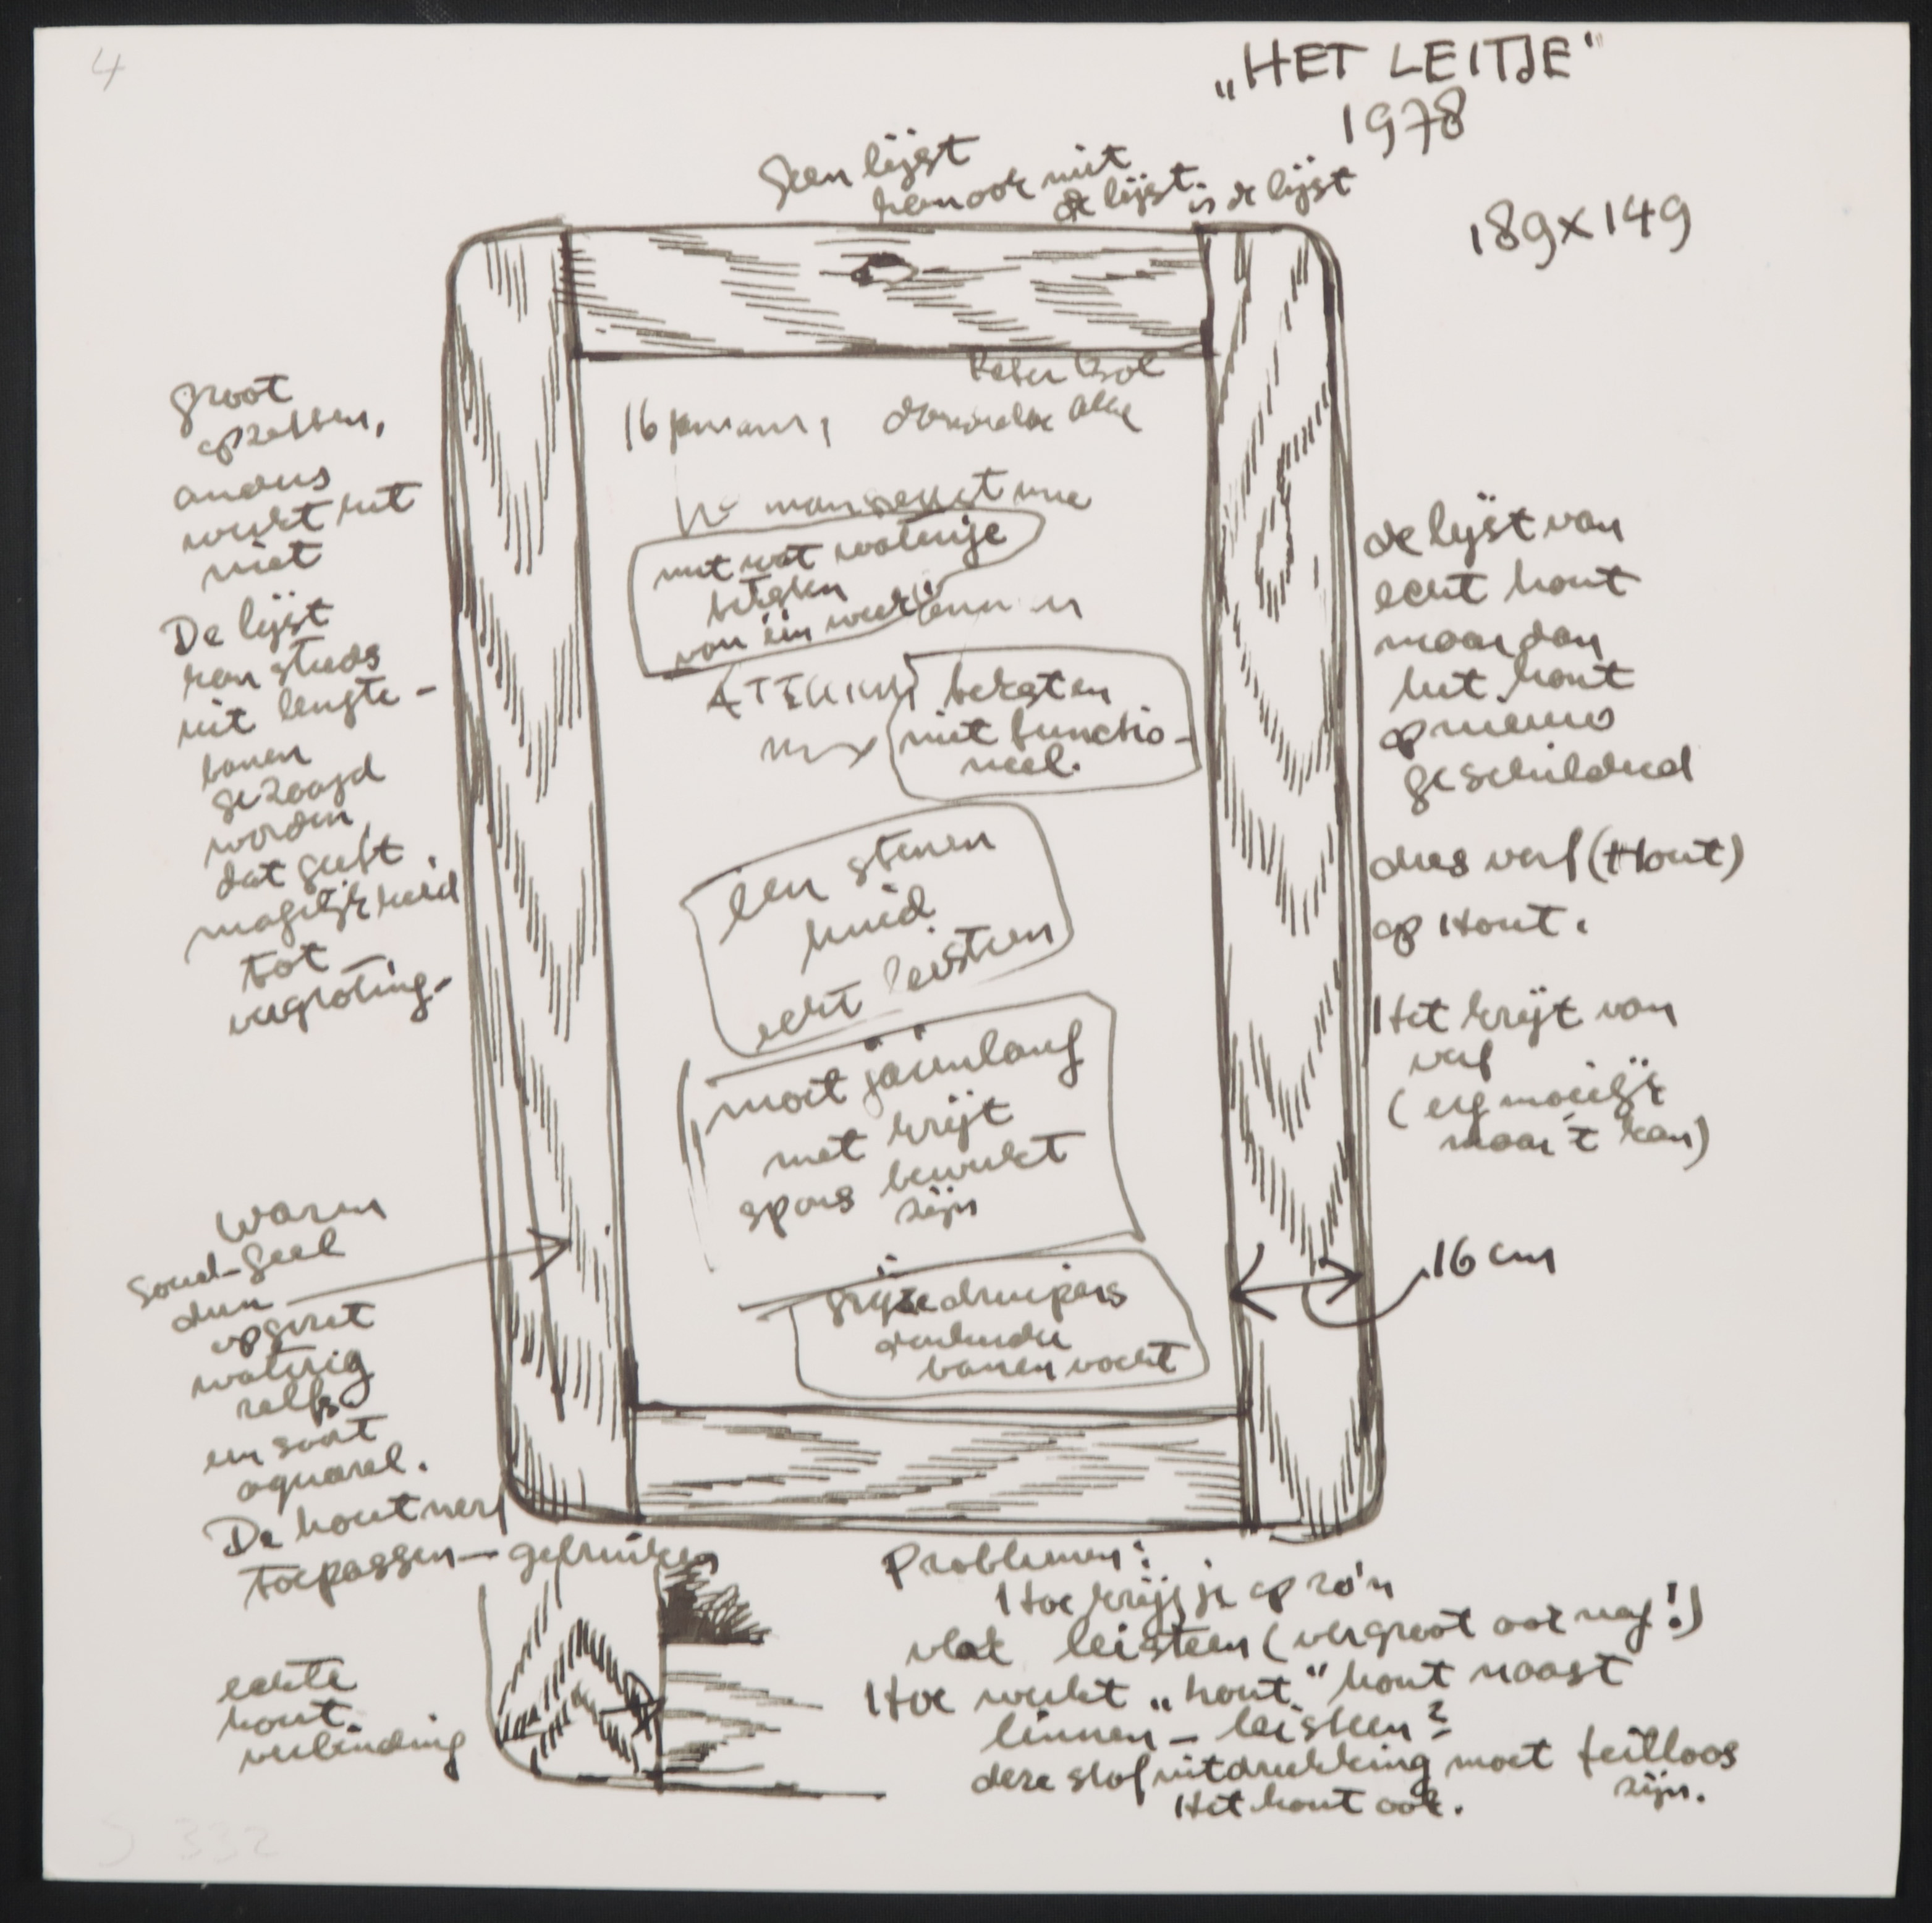 4
„HET LEITJE"
1978
189x149
Geen lijst
kan ook niet
de lijst. is de lijst
groot
opzetten,
anders
werkt het
niet
De lijst
kan steeds
uit lengte-
banen
gezaagd
worden,
dat geeft
mogelijkheid
tot
vergroting-
warm
goud-geel
dun
opgezet
waterig
zelfs
een soort
aquarel.
De houtnerf
toepassen - gebruiken
echte
hout
verbinding
Peter Bol
16 januari,
met wat waterige
teksten
van één
teksten
niet functio-
neel.
een stenen
huid
echt leisteen
moet jarenlang
met krijt
spons bewerkt
zijn
grijze druipers
banen vocht
de lijst van
echt hout
maar dan
het hout
opnieuw
geschilderd
dus verf (Hout)
op Hout.
Het krijt van
verf
(erg moeilijk
maar 't kan)
16 cm
Problemen:
Hoe krijg je op zo'n
vlak leisteen (vergroot ook nog!)
Hoe werkt „hout" hout naast
linnen - leisteen?
deze stofuitdrukking moet feilloos
zijn.
Het hout ook.
S 332